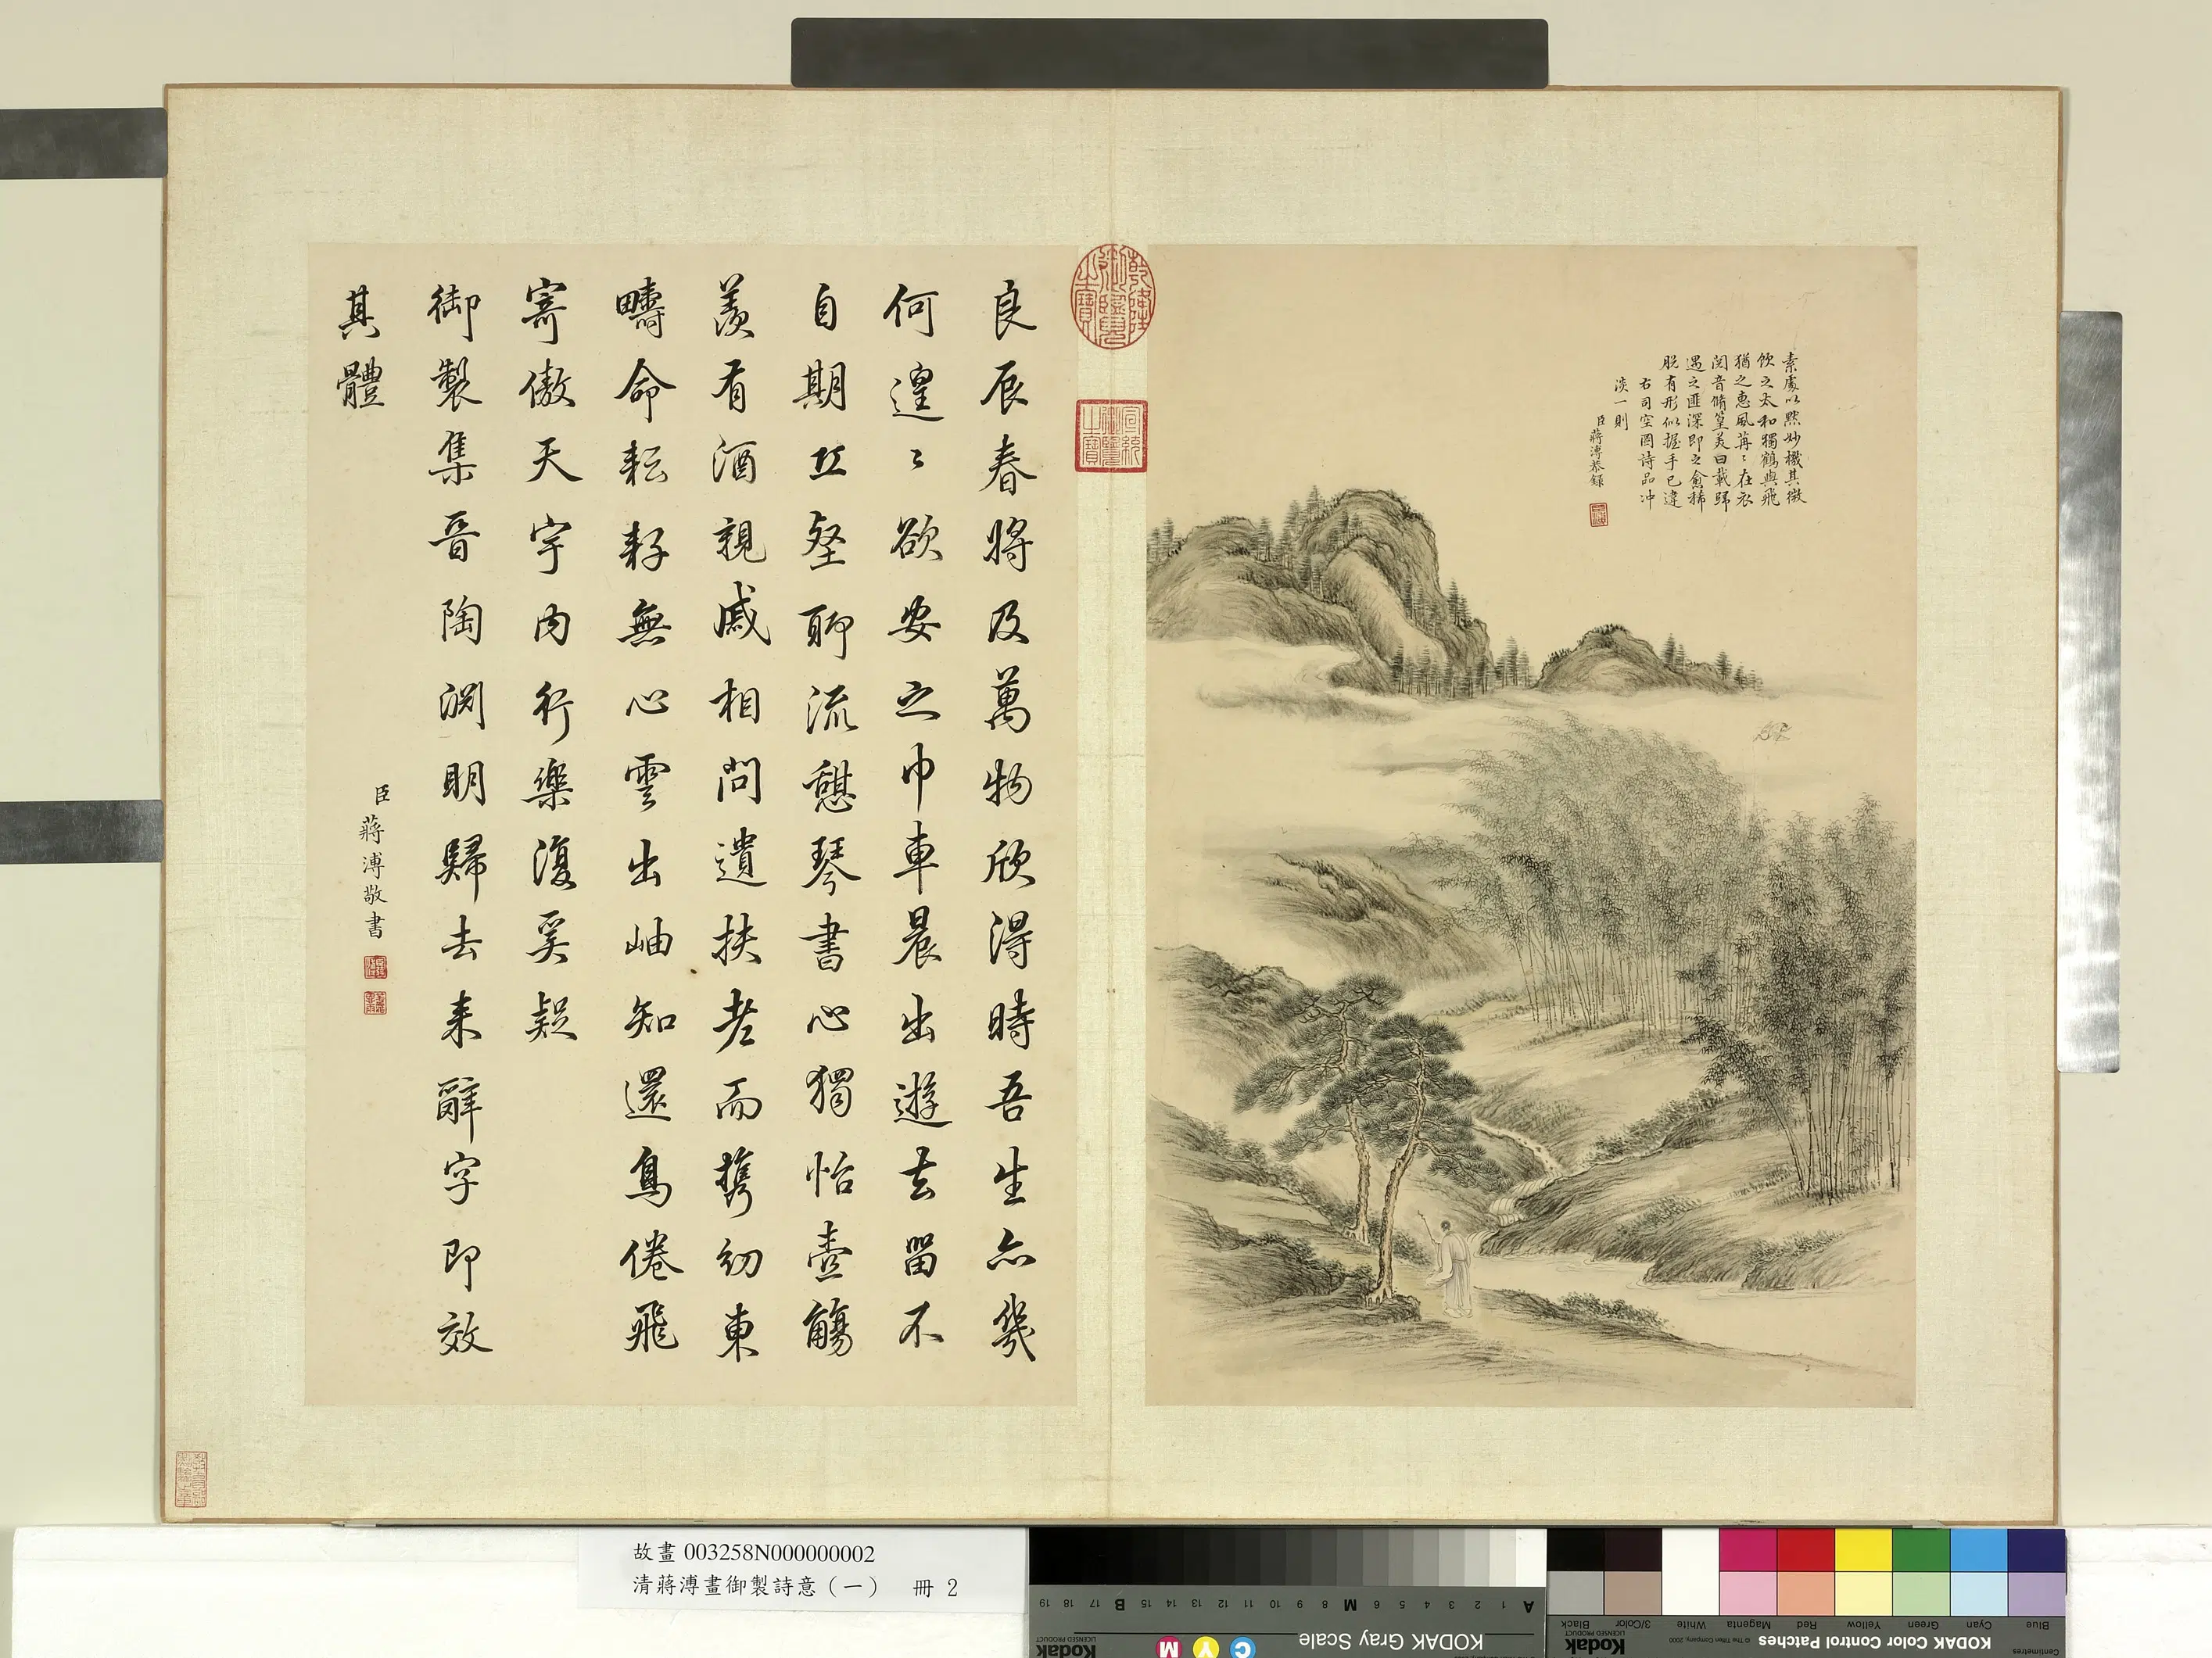 素處以默妙機其微
飲之太和獨鶴與飛
猶之惠風苒〻在衣
閱音脩篁美曰載歸
遇之匪深即之愈稀
脫有形似握手已違
右司空圖詩品冲
淡一則
臣蔣溥恭錄
乾隆御覽之寶
宣統御覽之寶
良辰春將及萬物欣得時吾生亦幾
何遑〻欲安之巾車晨出遊去留不
自期丘壑聊流憩琴書心獨怡壺觴
羨有酒親戚相問遺扶老而攜幼東
疇命耘耔無心雲出岫知還鳥倦飛
寄傲天宇内行樂復奚疑
御製集晉陶渊明歸去来辭字即效
其體
臣蔣溥敬書
故畫 003258N000000002
清蔣溥畫御製詩意（一） 冊 2
KODAK Gray Scale
A 1 2 3 4 5 6 M 8 9 10 11 12 13 14 15 B 17 18 19
C Y M
Kodak
LICENSED PRODUCT
KODAK Color Control Patches
© The Tiffen Company, 2000
Kodak
LICENSED PRODUCT
Centimetres
Blue Cyan Green Yellow Red Magenta White 3/Color Black